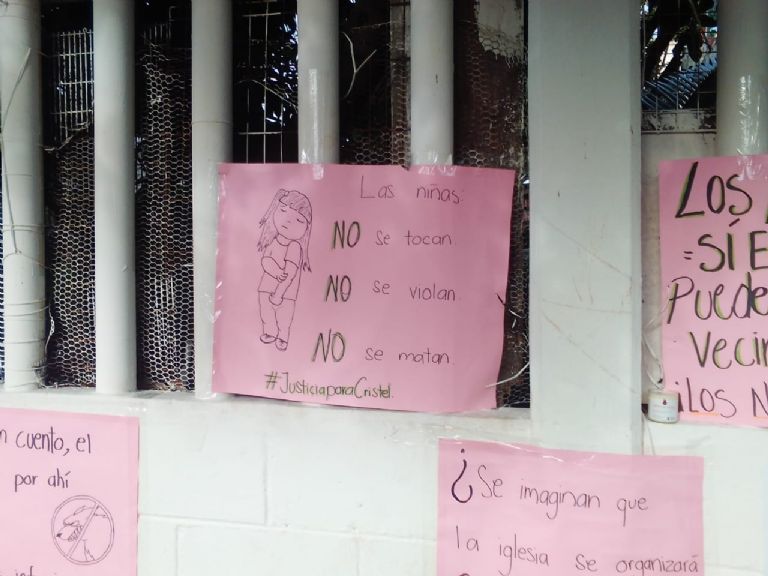 Las niñas:
NO se tocan.
NO se violan.
NO se matan.
#JusticiaparaCristel.
LOS
=SÍ E
Puede
Vecin
¡LOS N
n cuento, el
por ahí
¿Se imaginan que
la iglesia se organizará